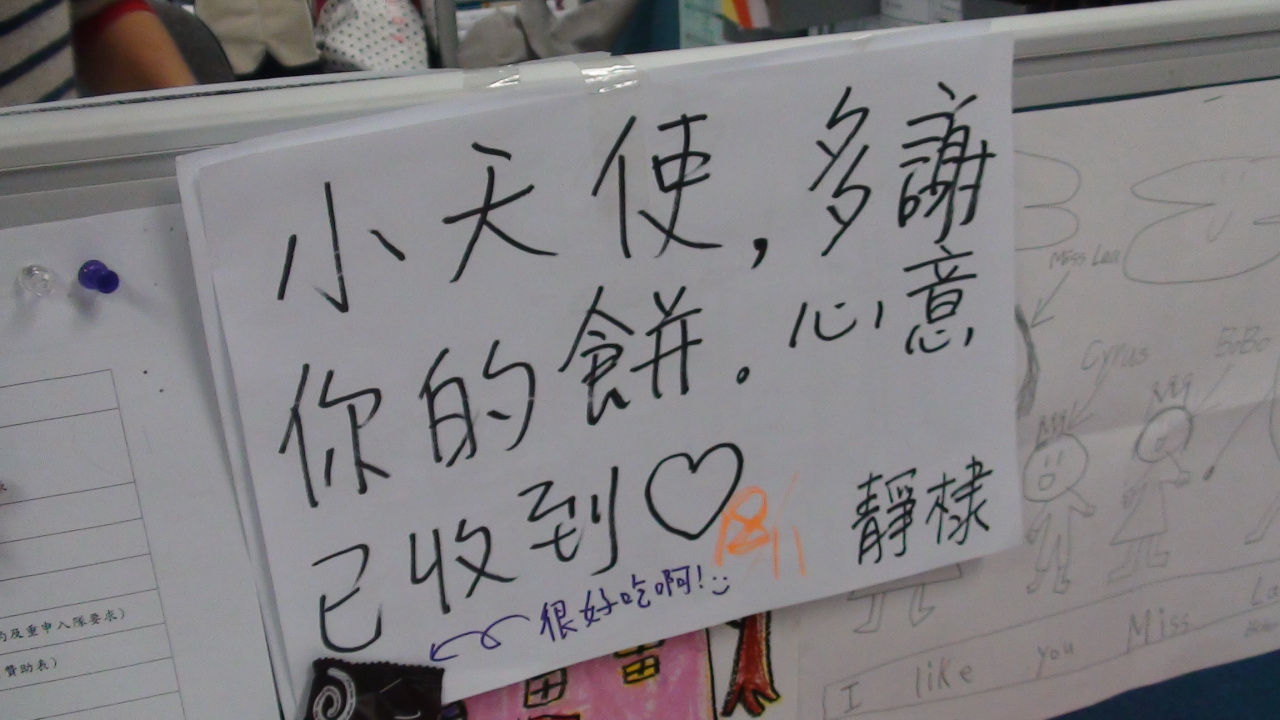 小天使，多謝
你的餅。心意
已收到♡
靜棣
很好吃啊!
及重申入隊要求）
贊助表）
Miss Lau
Cyrus
BoBo
I like you Miss